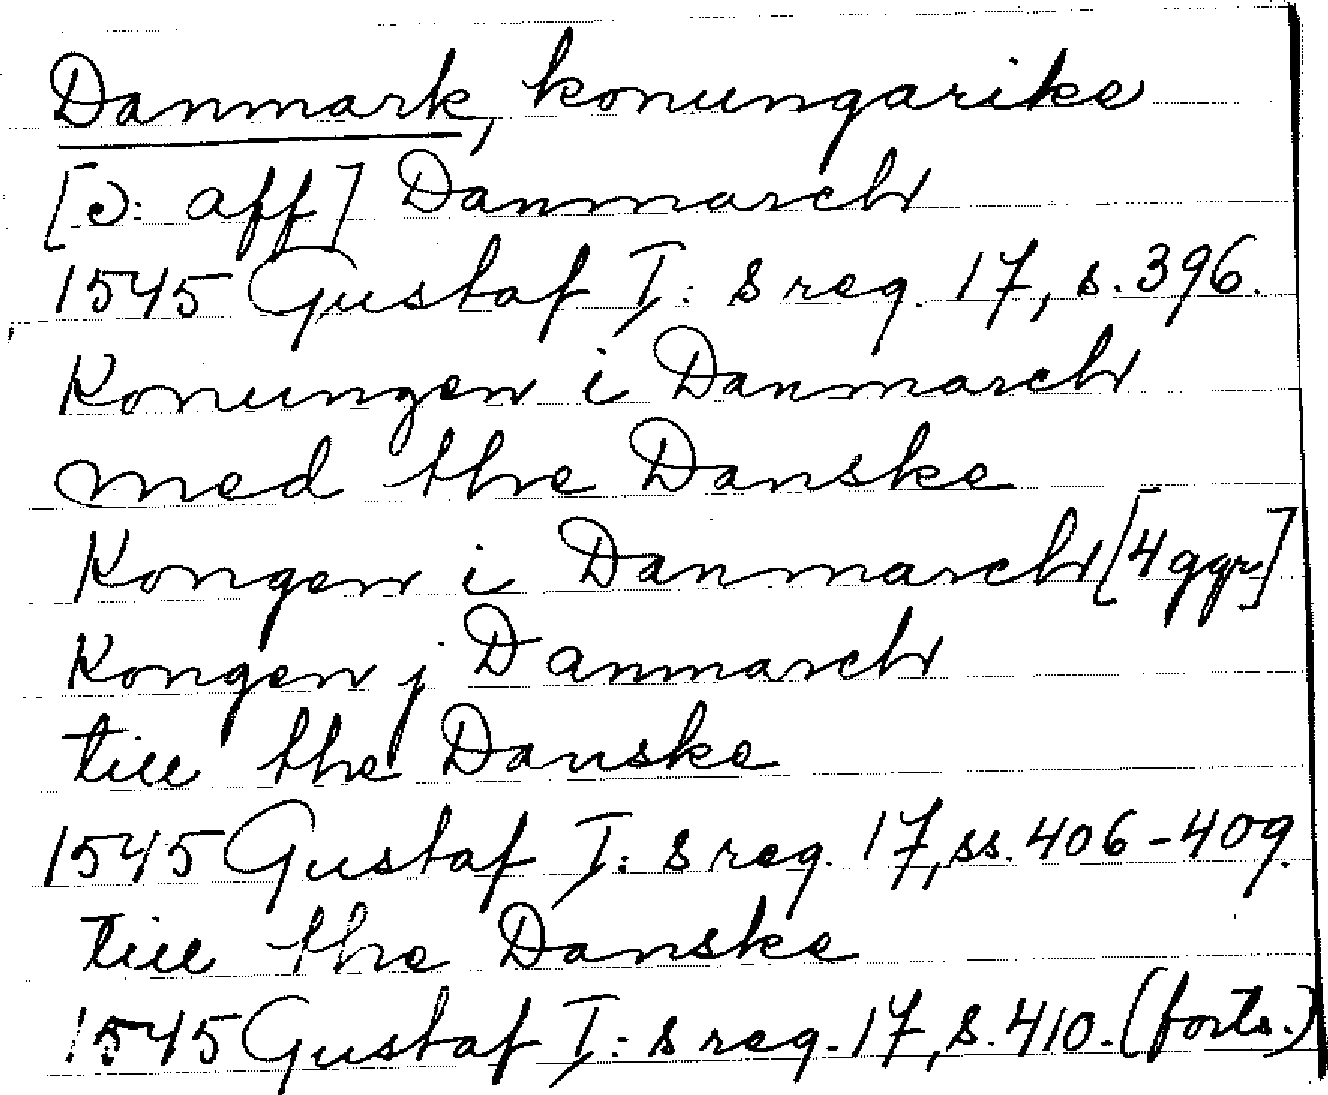 Danmark, konungarike
[ɔ: aff] Danmarch
1545 Gustaf I:s reg. 17, s. 396.
Konungen i Danmarch
med the Danske
Kongen i Danmarch [4 ggr]
Kongen j Danmarch
till the Danske
1545 Gustaf I:s reg. 17, ss. 406-409.
till the Danske
1545 Gustaf I:s reg. 17, s. 410. (forts.)